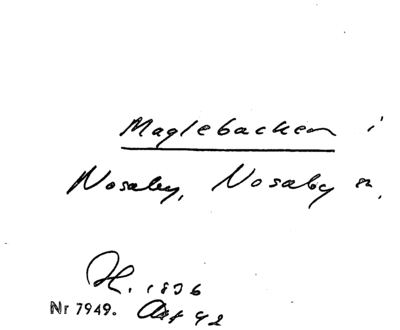 Maglebacken i
Nosaby, Nosaby sn.
H. 1836
Nr 7949. Akt 42